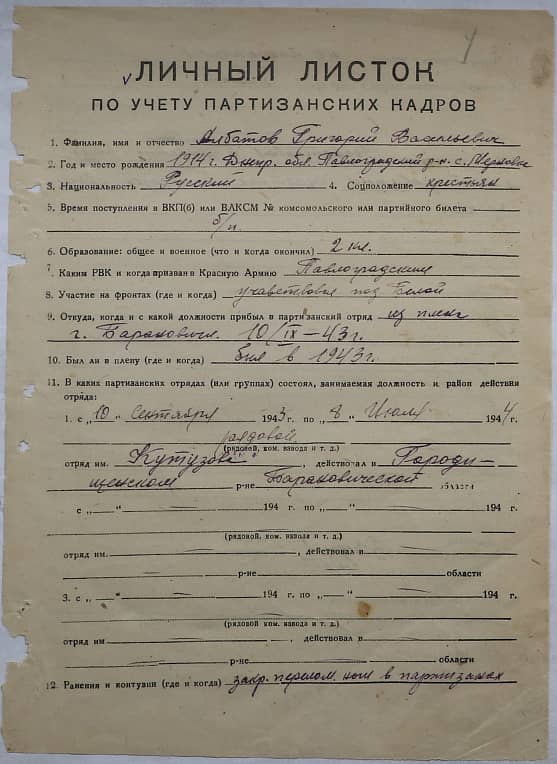 ЛИЧНЫЙ ЛИСТОК
ПО УЧЕТУ ПАРТИЗАНСКИХ КАДРОВ
1. Фамилия, имя и отчество Албатов Григорий Васильевич
2. Год и место рождения 1914 г. Днепр. обл. Павлоградский р-н. с.
3. Национальность Русский 4. Соцположение крестьян
5. Время поступления в ВКП(б) или ВЛКСМ № комсомольского или партийного билета
б/п.
6. Образование: общее и военное (что и когда окончил) 2 кл.
7. Каким РВК и когда призван в Красную Армию Павлоградским
8. Участие на фронтах (где и когда) учавствовал под
9. Откуда, когда и с какой должности прибыл в партизанский отряд из плена
г. Барановичи. 10/IX — 43 г.
10. Был ли в плену (где и когда) был в 1943 г.
11. В каких партизанских отрядах (или группах) состоял, занимаемая должность и район действия
отряда:
1. с „10" Сентября 1943 г. по „8" Июля 1944 г.
рядовой
(рядовой, ком. взвода и т. д.)
отряд им. Кутузова, действовал в Городи-
щенском р-не Барановической области
с „—" 194 г. по „—" 194 г.
(рядовой, ком. взвода и т. д.)
отряд им. , действовал в
р-не области
3. с „—" 194 г. по „—" 194 г.
(рядовой, ком. взвода и т. д.)
отряд им , действовал в
р-не области
12. Ранения и контузии (где и когда) закр. перелом. ноги в партизанах